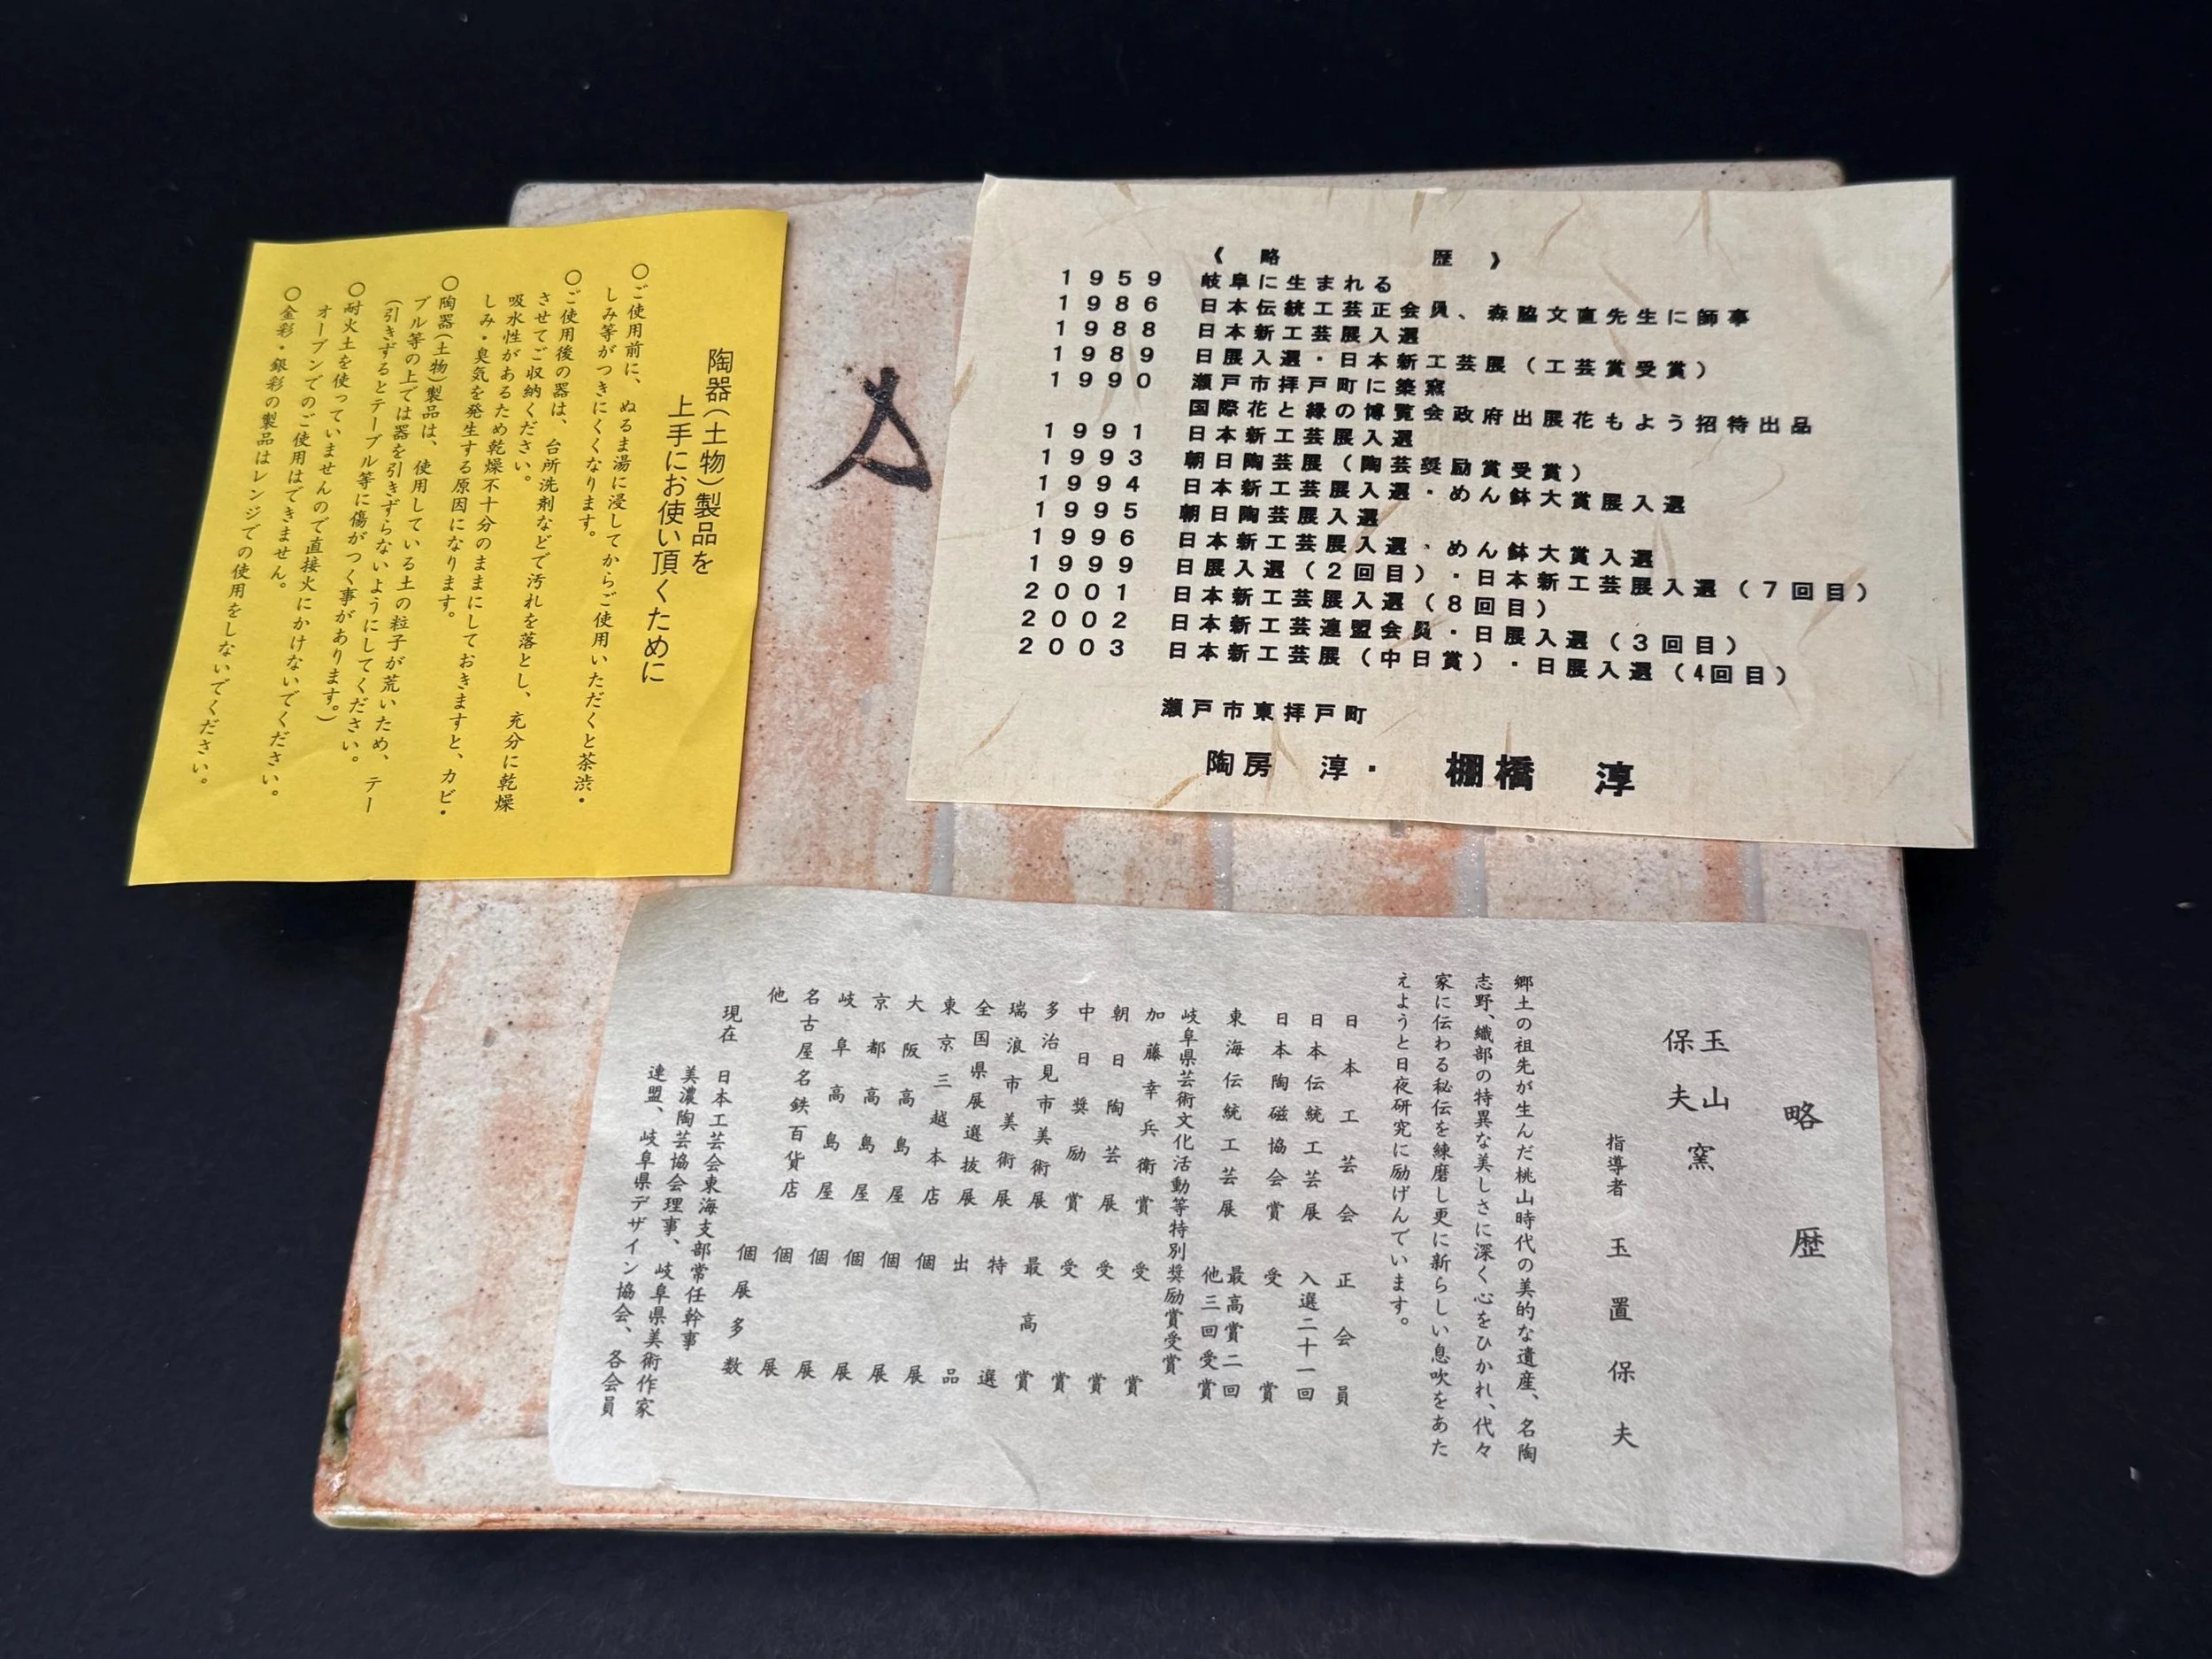 陶器(土物)製品を
上手にお使い頂くために
○ご使用前に、ぬるま湯に浸してからご使用いただくと茶渋・
しみ等がつきにくくなります。
○ご使用後の器は、台所洗剤などで汚れを落とし、充分に乾燥
させてご収納ください。
吸水性があるため乾燥不十分のままにしておきますと、カビ・
しみ・臭気を発生する原因になります。
○陶器(土物)製品は、使用している土の粒子が荒いため、テー
ブル等の上では器を引きずらないようにしてください。
(引きずるとテーブル等に傷がつく事があります。)
○耐火土を使っていませんので直接火にかけないでください。
オーブンでのご使用はできません。
○金彩・銀彩の製品はレンジでの使用をしないでください。
《略歴》
1959 岐阜に生まれる
1986 日本伝統工芸正会員、森脇文直先生に師事
1988 日本新工芸展入選
1989 日展入選・日本新工芸展(工芸賞受賞)
1990 瀬戸市拝戸町に築窯
国際花と緑の博覧会政府出展花もよう招待出品
1991 日本新工芸展入選
1993 朝日陶芸展(陶芸奨励賞受賞)
1994 日本新工芸展入選・めん鉢大賞展入選
1995 朝日陶芸展入選
1996 日本新工芸展入選・めん鉢大賞入選
1999 日展入選(2回目)・日本新工芸展入選(7回目)
2001 日本新工芸展入選(8回目)
2002 日本新工芸連盟会員・日展入選(3回目)
2003 日本新工芸展(中日賞)・日展入選(4回目)
瀬戸市東拝戸町
陶房 淳・ 棚橋 淳
略歴
玉山窯
保夫
指導者 玉置保夫
郷土の祖先が生んだ桃山時代の美的な遺産、名陶
志野、織部の特異な美しさに深く心をひかれ、代々
家に伝わる秘伝を練磨し更に新らしい息吹をあた
えようと日夜研究に励げんでいます。
日本工芸会 正会員
日本伝統工芸展 入選二十一回
日本陶磁協会賞 受賞
東海伝統工芸展 最高賞二回
他三回受賞
岐阜県芸術文化活動等特別奨励賞受賞
加藤幸兵衛賞 受賞
朝日陶芸展 受賞
中日奨励賞 受賞
多治見市美術展 最高賞
瑞浪市美術展 特選
全国県展選抜展 出品
東京三越本店 個展
大阪高島屋 個展
京都高島屋 個展
岐阜高島屋 個展
名古屋名鉄百貨店 個展
他 個展多数
現在 日本工芸会東海支部常任幹事
美濃陶芸協会理事、岐阜県美術作家
連盟、岐阜県デザイン協会、各会員